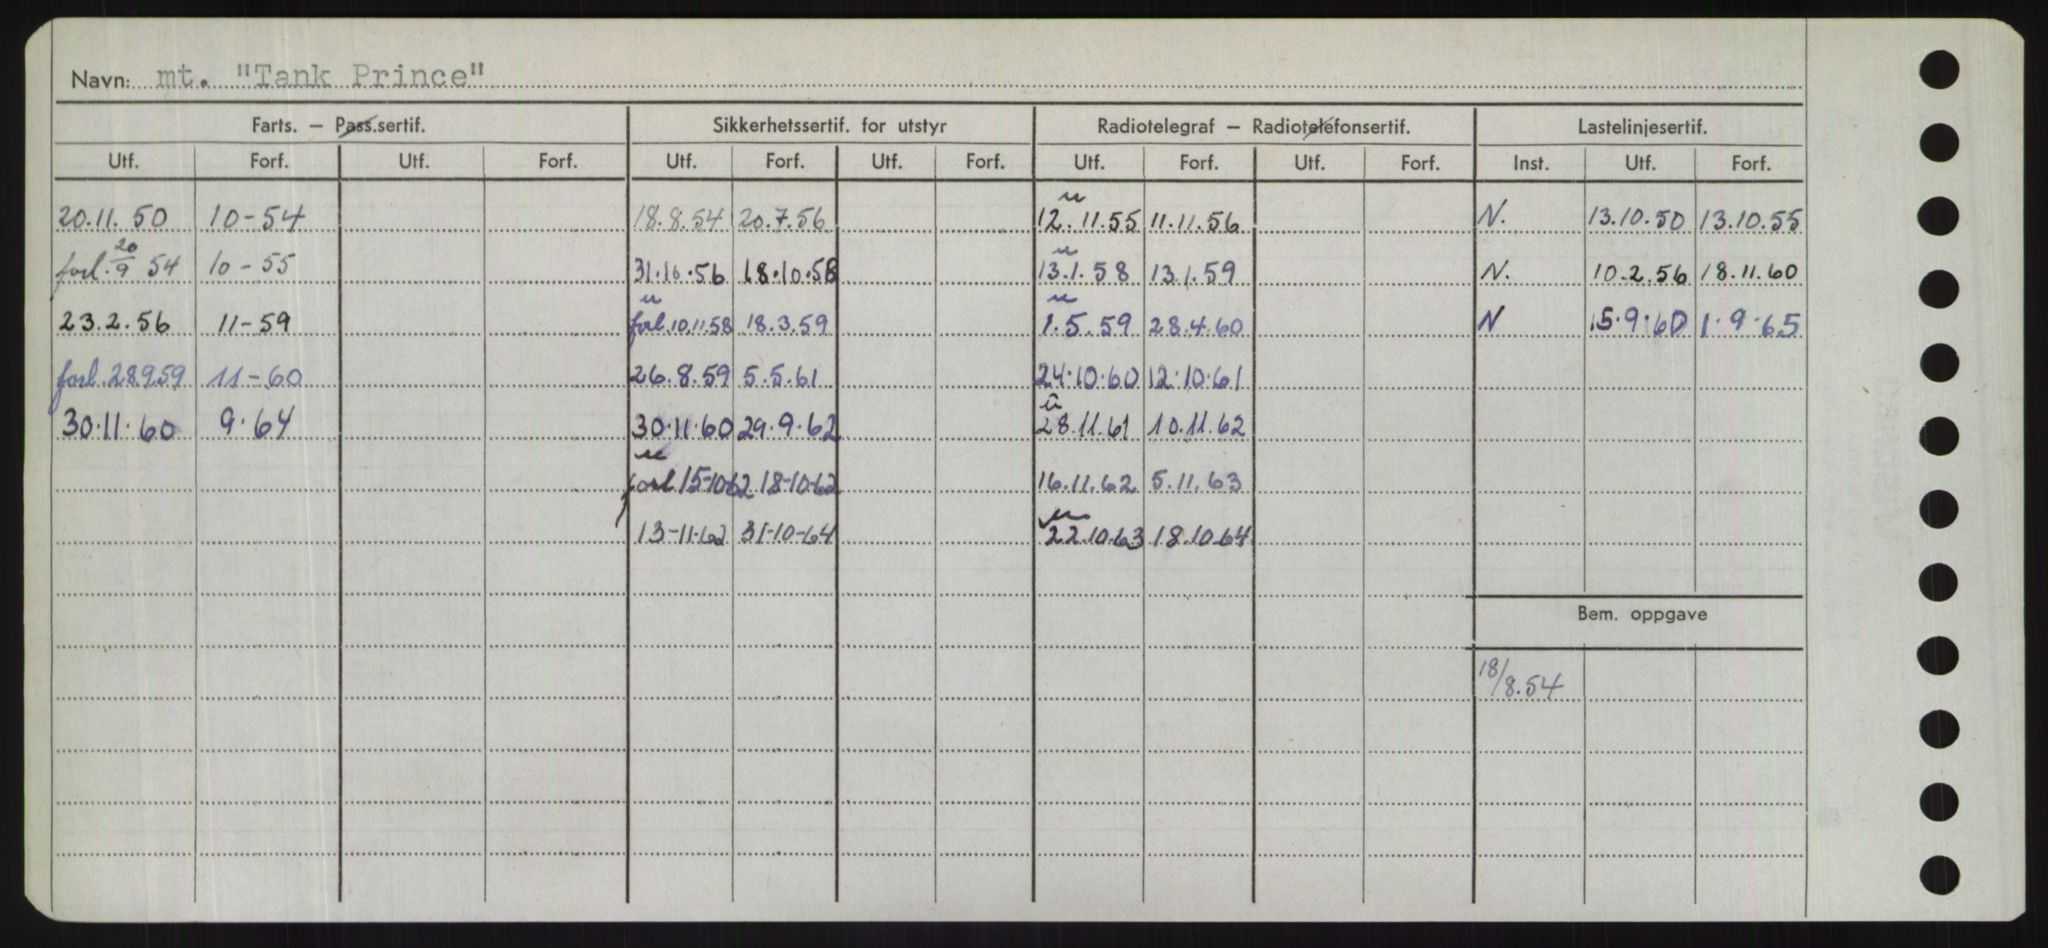 Navn: mt. "Tank Prince"
Farts. – Pass.sertif. Sikkerhetssertif. for utstyr Radiotelegraf – Radiotelefonsertif. Lastelinjesertif.
Utf. Forf. Utf. Forf. Utf. Forf. Utf. Forf. Utf. Forf. Utf. Forf. Inst. Utf. Forf.
20.11.50 10-54 18.8.54 20.7.56 u 12.11.55 11.11.56 N. 13.10.50 13.10.55
forl. 20/9 54 10-55 31.10.56 18.10.58 u 13.1.58 13.1.59 N. 10.2.56 18.11.60
23.2.56 11-59 u forl 10.11.58 18.3.59 u 1.5.59 28.4.60 N 15.9.60 1.9.65
forl. 28959 11-60 26.8.59 5.5.61 24.10.60 12.10.61
30.11.60 9.64 30.11.60 29.9.62 u 28.11.61 10.11.62
u forl 15-10-62 18-10-62 16.11.62 5.11.63
13-11-62 31-10-64 u 22.10.63 18.10.64
Bem. oppgave
18/8.54